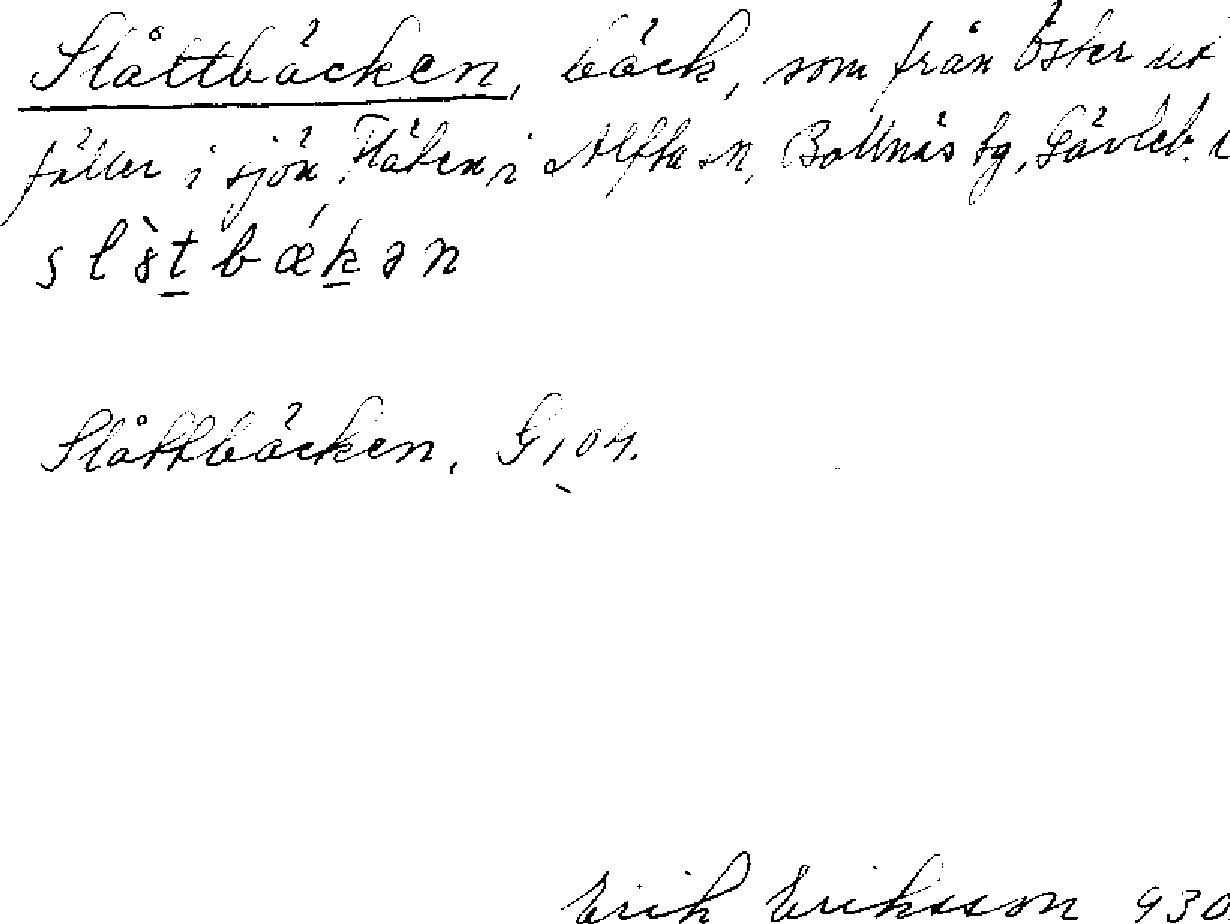 Slåttbäcken, bäck, som från öster ut
faller i sjön Flåten, i Alfta sn, Bollnäs tg, Gävleb. l
s l ꝍ̀ t b ǽ k ə n
Slåttbäcken, G 104.
Erik Eriksson 930